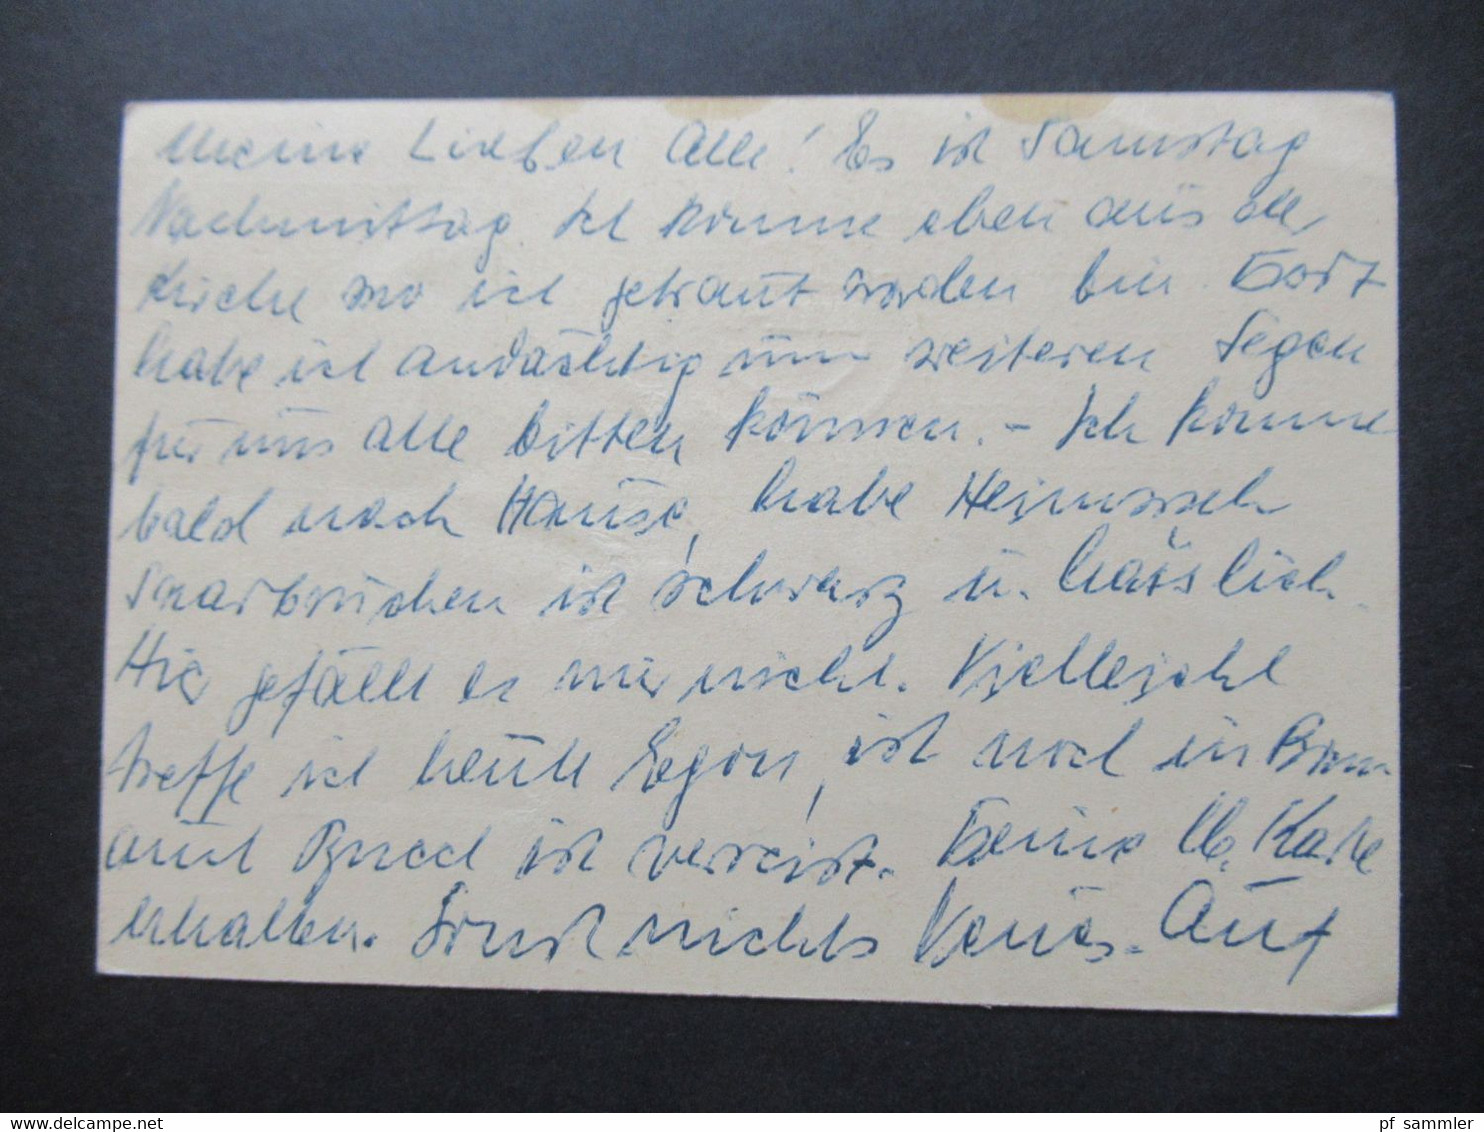 Meine Lieben Alle! Es ist Samstag
Nachmittag Ich komme eben aus der
Kirche wo ich getraut worden bin Dort
habe ich andächtig um weiteren Segen
für uns alle bitten können. - Ich komme
bald nach Hause, habe Heimweh
Saarbrücken ist schwarz u. hässlich.
Hier gefällt es mir nicht. Vielleicht
treffe ich heute Egon, ist noch in
auch ist verreist. Deine lb. Karte
erhalten. Sonst nichts Neues. Auf
www.delcampe.net
pf_sammler